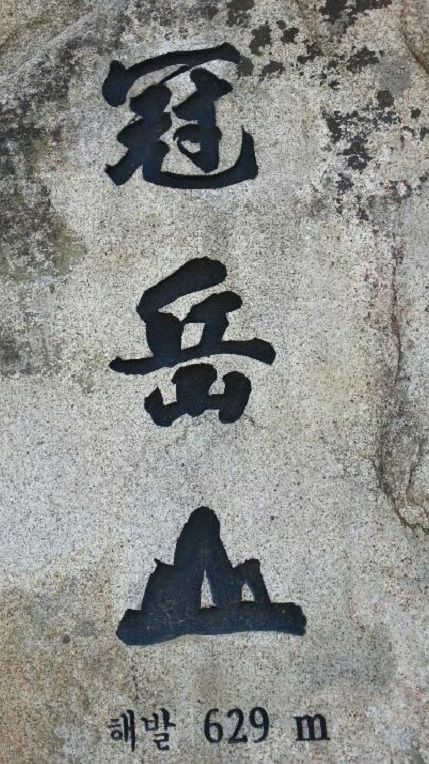 冠岳山
해발 629 m